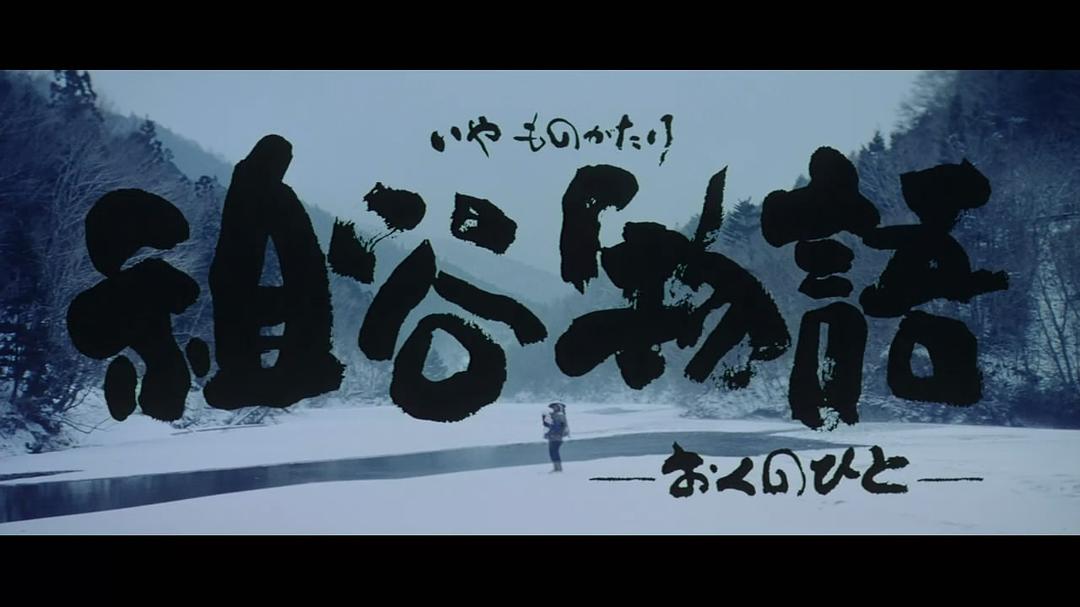 いやものがたり
祖谷物語
—おくのひと—